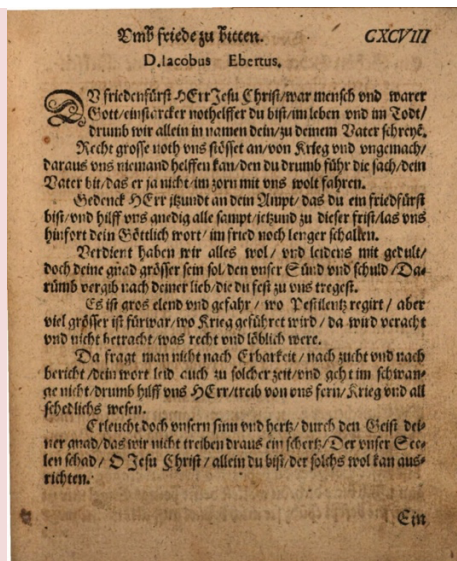 Vmb friede zu bitten. CXCVIII
D. Iacobus Ebertus.
DV friedenfürst HErr Jesu Christ/war mensch vnd warer
Gott/ein starcker nothelffer du bist/im leben vnd im Todt/
drumb wir allein in namen dein/zu deinem Vater schreyẽ.
Recht grosse noth vns stösset an/von Krieg vnd vngemach/
daraus vns niemand helffen kan/den du drumb führ die sach/dein
Vater bit/das er ja nicht/im zorn mit vns wolt fahren.
Gedenck HErr itzundt an dein Ampt/das du ein friedfürst
bist/vnd hilff vns gnedig alle sampt/jetzund zu dieser frist/las vns
hinfort dein Göttlich wort/im fried noch lenger schallen.
Verdient haben wir alles wol/vnd leidens mit gedult/
doch deine gnad grösser sein sol/den vnser Sünd vnd schuld/Da-
rümb vergib nach deiner lieb/die du fest zu vns tregest.
Es ist gros elend vnd gefahr/wo Pestilentz regirt/aber
viel grösser ist fürwar/wo Krieg geführet wird/da wird veracht
vnd nicht betracht/was recht vnd löblich were.
Da fragt man nicht nach Erbarkeit/nach zucht vnd nach
bericht/dein wort leid auch zu solcher zeit/vnd geht im schwan-
ge nicht/drumb hilff vns HErr/treib von vns fern/Krieg vnd all
schedlichs wesen.
Erleucht doch vnsern sinn vnd hertz/durch den Geist dei-
ner gnad/das wir nicht treiben draus ein schertz/Der vnser See-
len schad/O Jesu Christ/allein du bist/der solchs wol kan aus-
richten.
Ein